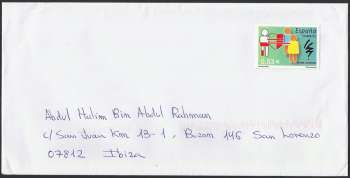 España
0,83 €
Abdul Halim Bin Abdul Rahman
c/ San Juan Km 13-1, Buzon 146 San Lorenzo
07812 Ibiza